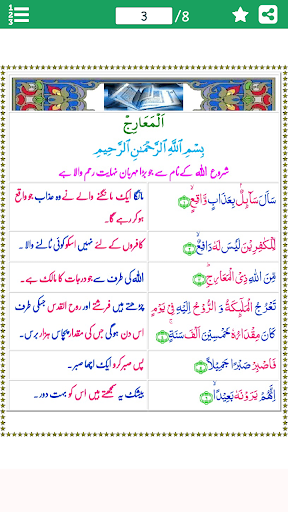 3 /8
اَلْمَعَارِجْ
بِسْمِ اللَّهِ الرَّحْمَٰنِ الرَّحِيمِ
شروع اللہ کے نام سے جو بڑا مہربان نہایت رحم والا ہے
سَاَلَ سَآىِٕلٌۢ بِعَذَابٍ وَّاقِعٍۙ ۱
مانگا ایک مانگنے والے نے وہ عذاب جو واقع ہو کر رہے گا۔
لِّلْكٰفِرِیْنَ لَیْسَ لَهٗ دَافِعٌۙ ۲
کافروں کے لئے نہیں اسکو کوئی ٹالنے والا ۔
مِّنَ اللّٰهِ ذِی الْمَعَارِجِؕ ۳
اللہ کی طرف سے جو درجات کا مالک ہے۔
تَعْرُجُ الْمَلٰٓىِٕكَةُ وَ الرُّوْحُ اِلَیْهِ فِیْ یَوْمٍ
كَانَ مِقْدَارُهٗ خَمْسِیْنَ اَلْفَ سَنَةٍۚ ۴
چڑھتے ہیں فرشتے اور روح القدس جسکی طرف
اس دن ہو گی جس کی مقدار پچاس ہزار برس۔
فَاصْبِرْ صَبْرًا جَمِیْلًا ۵
پس صبر کرو ایک اچھا صبر۔
اِنَّهُمْ یَرَوْنَهٗ بَعِیْدًاۙ ۶
بیشک یہ سمجھتے ہیں اس کو بہت دور۔